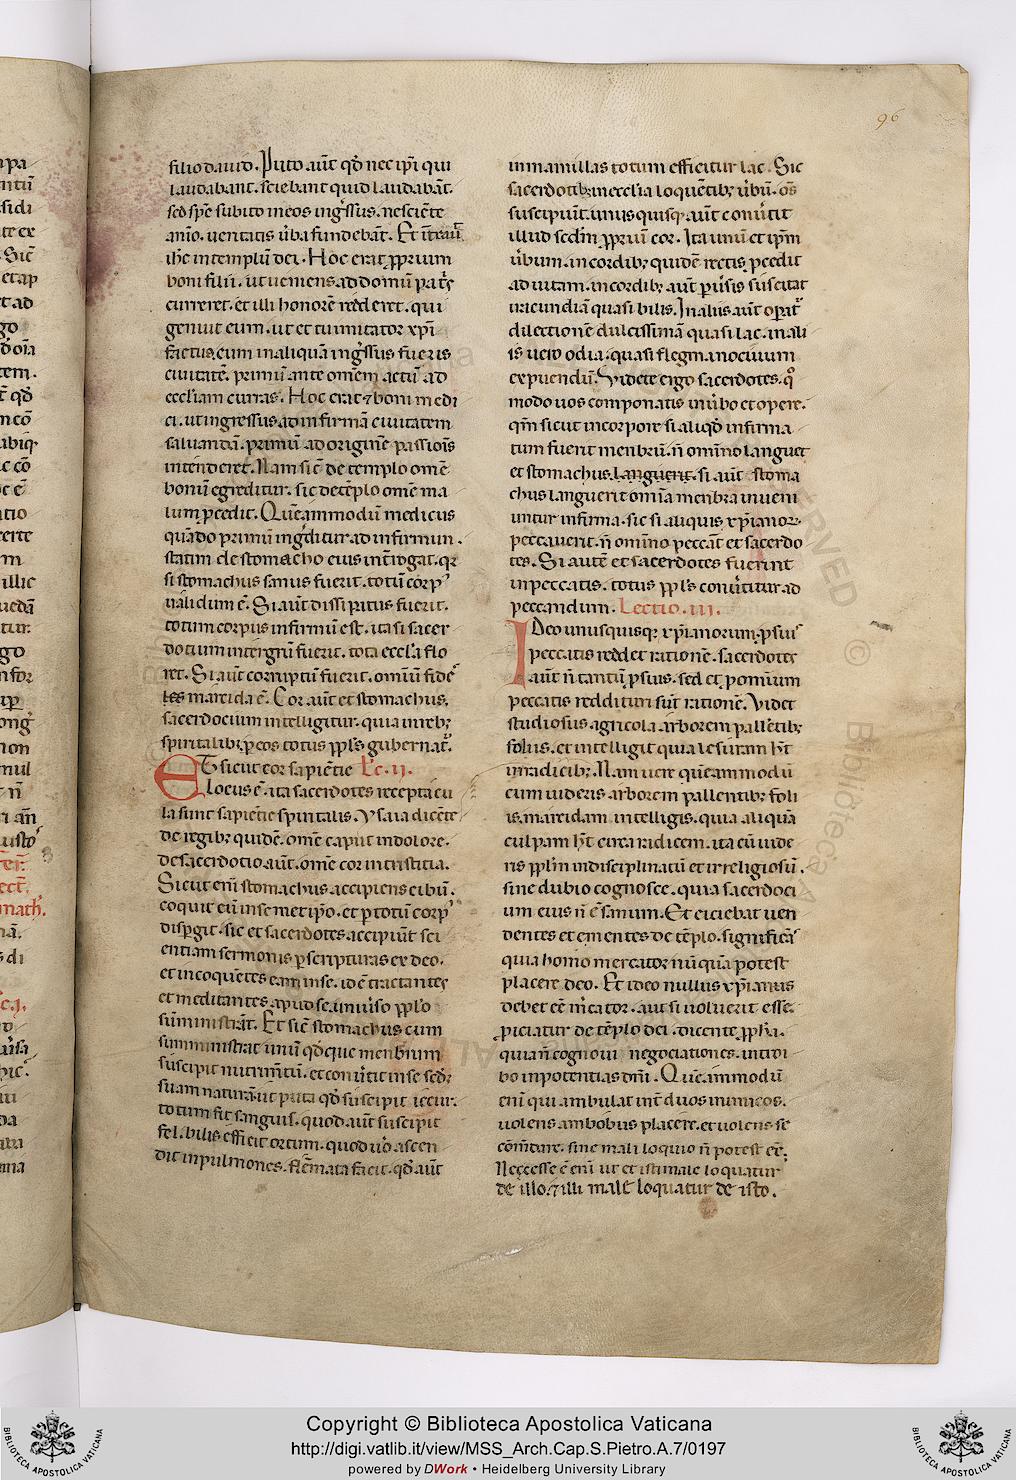 96
filio dauid. Puto aūt qđ nec ip̄i qui
laudabant. sciebant quid laudabāt.
sed sp̄e subito in eos ingr̄ssus. nesciēte
anīo. ueritatis ūba fundebāt. Et īt̄uit
ih̄c in templū dei. Hoc erat ꝓprium
boni filii. ut ueniens ad domū pat̄s
curreret. et illi honorē redderet. qui
genuit eum. ut et tu imitator xp̄i
factus. cum in aliquā ingr̄ssus fueris
ciuitatē. primū ante omēm actū ad
eccl̄iam curras. Hoc erat ⁊ boni medi
ci. ut ingressus ad infirmā ciuitatem
saluandā. primū ad originē passiōis
intenderet. Nam sic̄ de templo omē
bonū egreditur. sic de tēplo omē ma
lum ꝓcedit. Quēammodū medicus
quādo primū ingditur ad infirmum.
statim de stomacho eius int̄rogat. qꝛ
si stomachus sanus fuerit. totū corpꝰ
ualidum ē. Si aūt dissipatus fuerit.
totum corpus infirmū est. ita si sacer
dotium integrū fuerit. tota eccl̄a flo
ret. Si aūt corruptū fuerit. omiū fide
les marcida ē. Cor aūt et stomachus.
sacerdocium intelligitur. quia in reb;
spiritalib; ꝑ eos totus ppl̄s gubernat̄.
ET sicut cor sapientie Lc̄. ij.
locus ē. ita sacerdotes receptacu
la sunt sapiētie spiritalis. ysaia dicēte
de regib; quidē. omē caput in dolore.
de sacerdotio aūt. omē cor in tristitia.
Sicut enī stomachus accipiens cibū.
coquit eū in semetip̄o. et ꝑ totū corpꝰ
disꝑgit. sic et sacerdotes accipiūt sci
entiam sermonis ꝑ scripturas ex deo.
et in coquētes eam in se. id ē tractantes
et meditantes apud se. uniūso ppl̄o
sūministrāt. Et sic̄ stomachus cum
sumministrat unū qđque menbrum
suscipit nutrim̄tū. et conūtit in se sedm̄
suam naturā. ut puta qđ suscipit iecur.
totum fit sanguis. quod aūt suscipit
fel. bilis efficit ortum. quod ūo ascen
dit in pulmones. flēmata facit. qđ aūt
in mamillas totum efficitur lac. Sic
sacerdotib; in eccl̄ia loquētib; ūbū. ōs
suscipiūt. unusquisq; aūt conūtit
illud sedm̄ ꝓpriū cor. Ita unū et ip̄m
ūbum. in cordib; quidē rectis ꝓcedit
ad uitam. in cordib; aūt ꝑūsis suscitat
iracundiā quasi bilis. In aliis aūt oꝑat̄
dilectionē dulcissimā quasi lac. in ali
is uero odia. quasi flegma nociuum
expuendū. Videte ergo sacerdotes. qͦ
modo uos componatis in ūbo et opere.
qm̄ sicut in corpore si aliqđ infirma
tum fuerit menbrū. n̄ omīno languet
et stomachus languerit. si aūt stoma
chus languerit omīa menbra inueni
untur infirma. sic si aliquis xp̄ianoꝝ
peccauerit. n̄ omīno peccāt et sacerdo
tes. Si autē et sacerdotes fuerint
in peccatis. totus ppl̄s conūtitur ad
peccandum. Lectio. iii.
IDeo unusquisqꝫ xp̄ianorum. ꝓ suis
peccatis reddet rationē. sacerdotes
aūt n̄ tantū ꝓ suis. sed et ꝓ omnium
peccatis reddituri sūt rationē. Videt
studiosus agricola arborem pallētib;
foliis. et intelligit quia lesuram h̄t
in radicib;. Nam uere quēammodū
cum uideris arborem pallentib; foli
is. marcidam intelligis. quia aliquā
culpam h̄t circa radicem. ita cū uide
ris ppl̄m indisciplinatū et irreligiosū.
sine dubio cognosce. quia sacerdoci
um eius n̄ ē sanum. Et eiciebat uen
dentes et ementes de tēplo. significās
quia homo mercator nūquā potest
placere deo. Et ideo nullus xp̄ianus
debet eē m̄cator. aut si uoluerit esse.
ꝓiciatur de tēplo dei. dicente ꝓph̄a.
quia n̄ cognoui negociationes. introi
bo in potentias dn̄i. Quēammodū
enī qui ambulat int̄ duos inimicos.
uolens ambobus placere. et uolens se
cōm̄dare. sine maliloquio n̄ potest eē.
Neccesse ē enī ut et iste male loquatur
de illo. ⁊ illi malē loquatur de isto.
Copyright © Biblioteca Apostolica Vaticana
http://digi.vatlib.it/view/MSS_Arch.Cap.S.Pietro.A.7/0197
powered by DWork • Heidelberg University Library